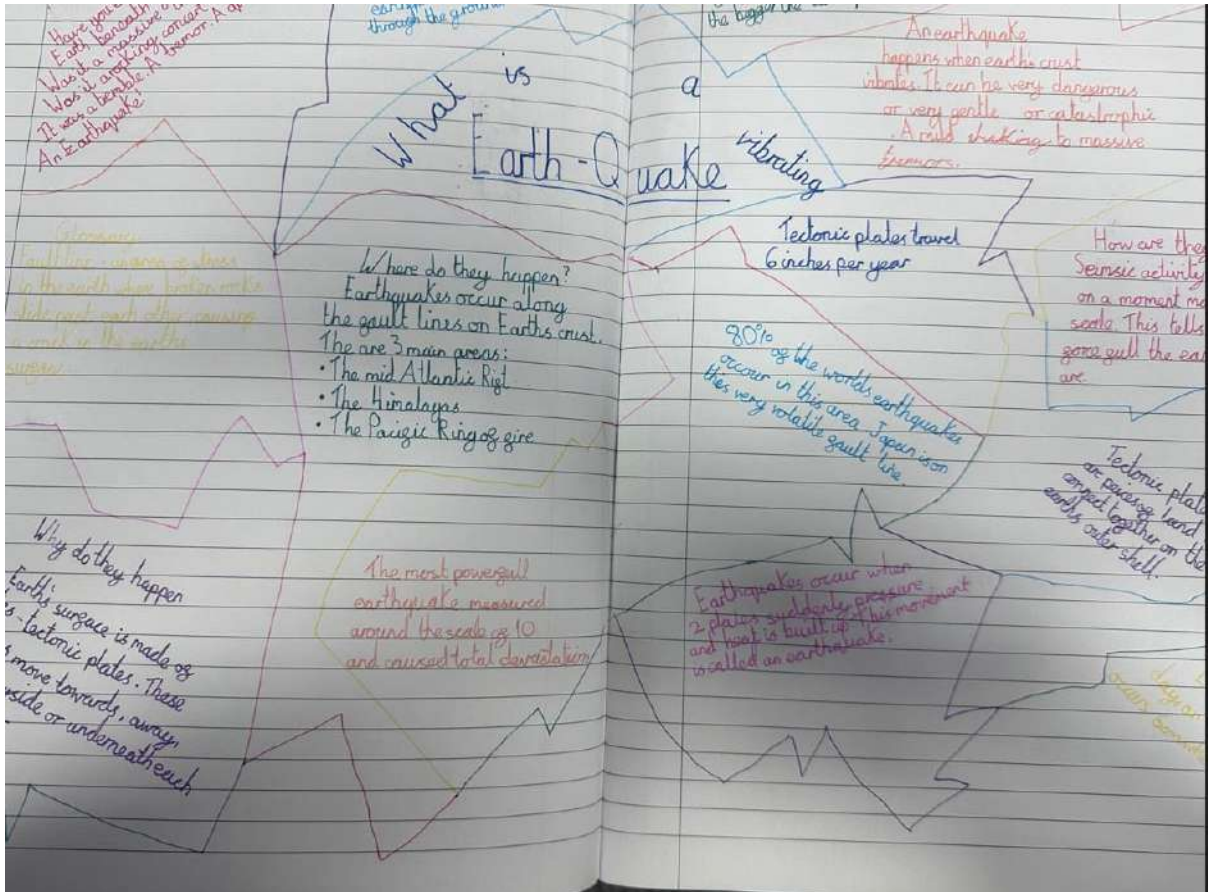 Have you
Earth beneath
Was it a massive
Was it a rocking concert
It was a terrible. A tremor. A
An Earthquake!
through the ground
the bigger the
What is a
Earth-Quake
vibrating
An earthquake
happens when earths crust
vibrates. It can be very dangerous
or very gentle or catastrophic
. A mild shaking to massive
tremors.
Glossary
Fault line - an area of
in the earth where broken rocks
slide past each other, causing
a crack in the earths
Where do they happen?
Earthquakes occur along
the gault lines on Earths crust.
The are 3 main areas:
• The mid Atlantic Rigt
• The Himalayas
• The Pacigic Ring og gire
Tectonic plates travel
6 inches per year
80% og the worlds earthquakes
occour in this area. Japan is on
this very volatile gault line.
How are they
Seimsic activity
on a moment ma
scale. This tells
gore gull the ear
are.
Tectonic plat
are peices og land
connect together on the
earths outer shell.
Why do they happen
Earths surgace is made og
s - tectonic plates. These
s move towards, away,
side or underneath each
The most powergull
earthquake measured
around the scale og 10
and caused total devastation
Earthquakes occur when
2 plates suddenly pressure
and heat is built up. This movement
is called an earthquake.